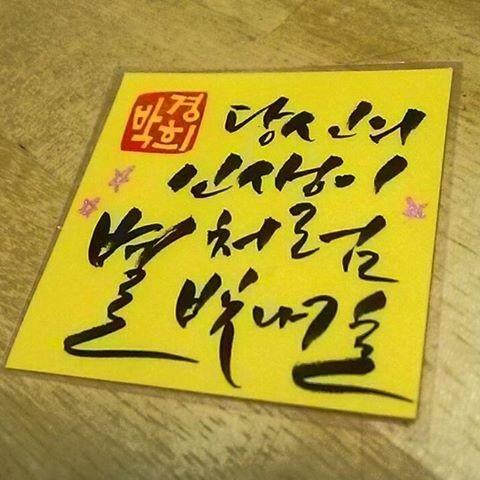 박경희
당신의
인생이
별처럼
빛나길